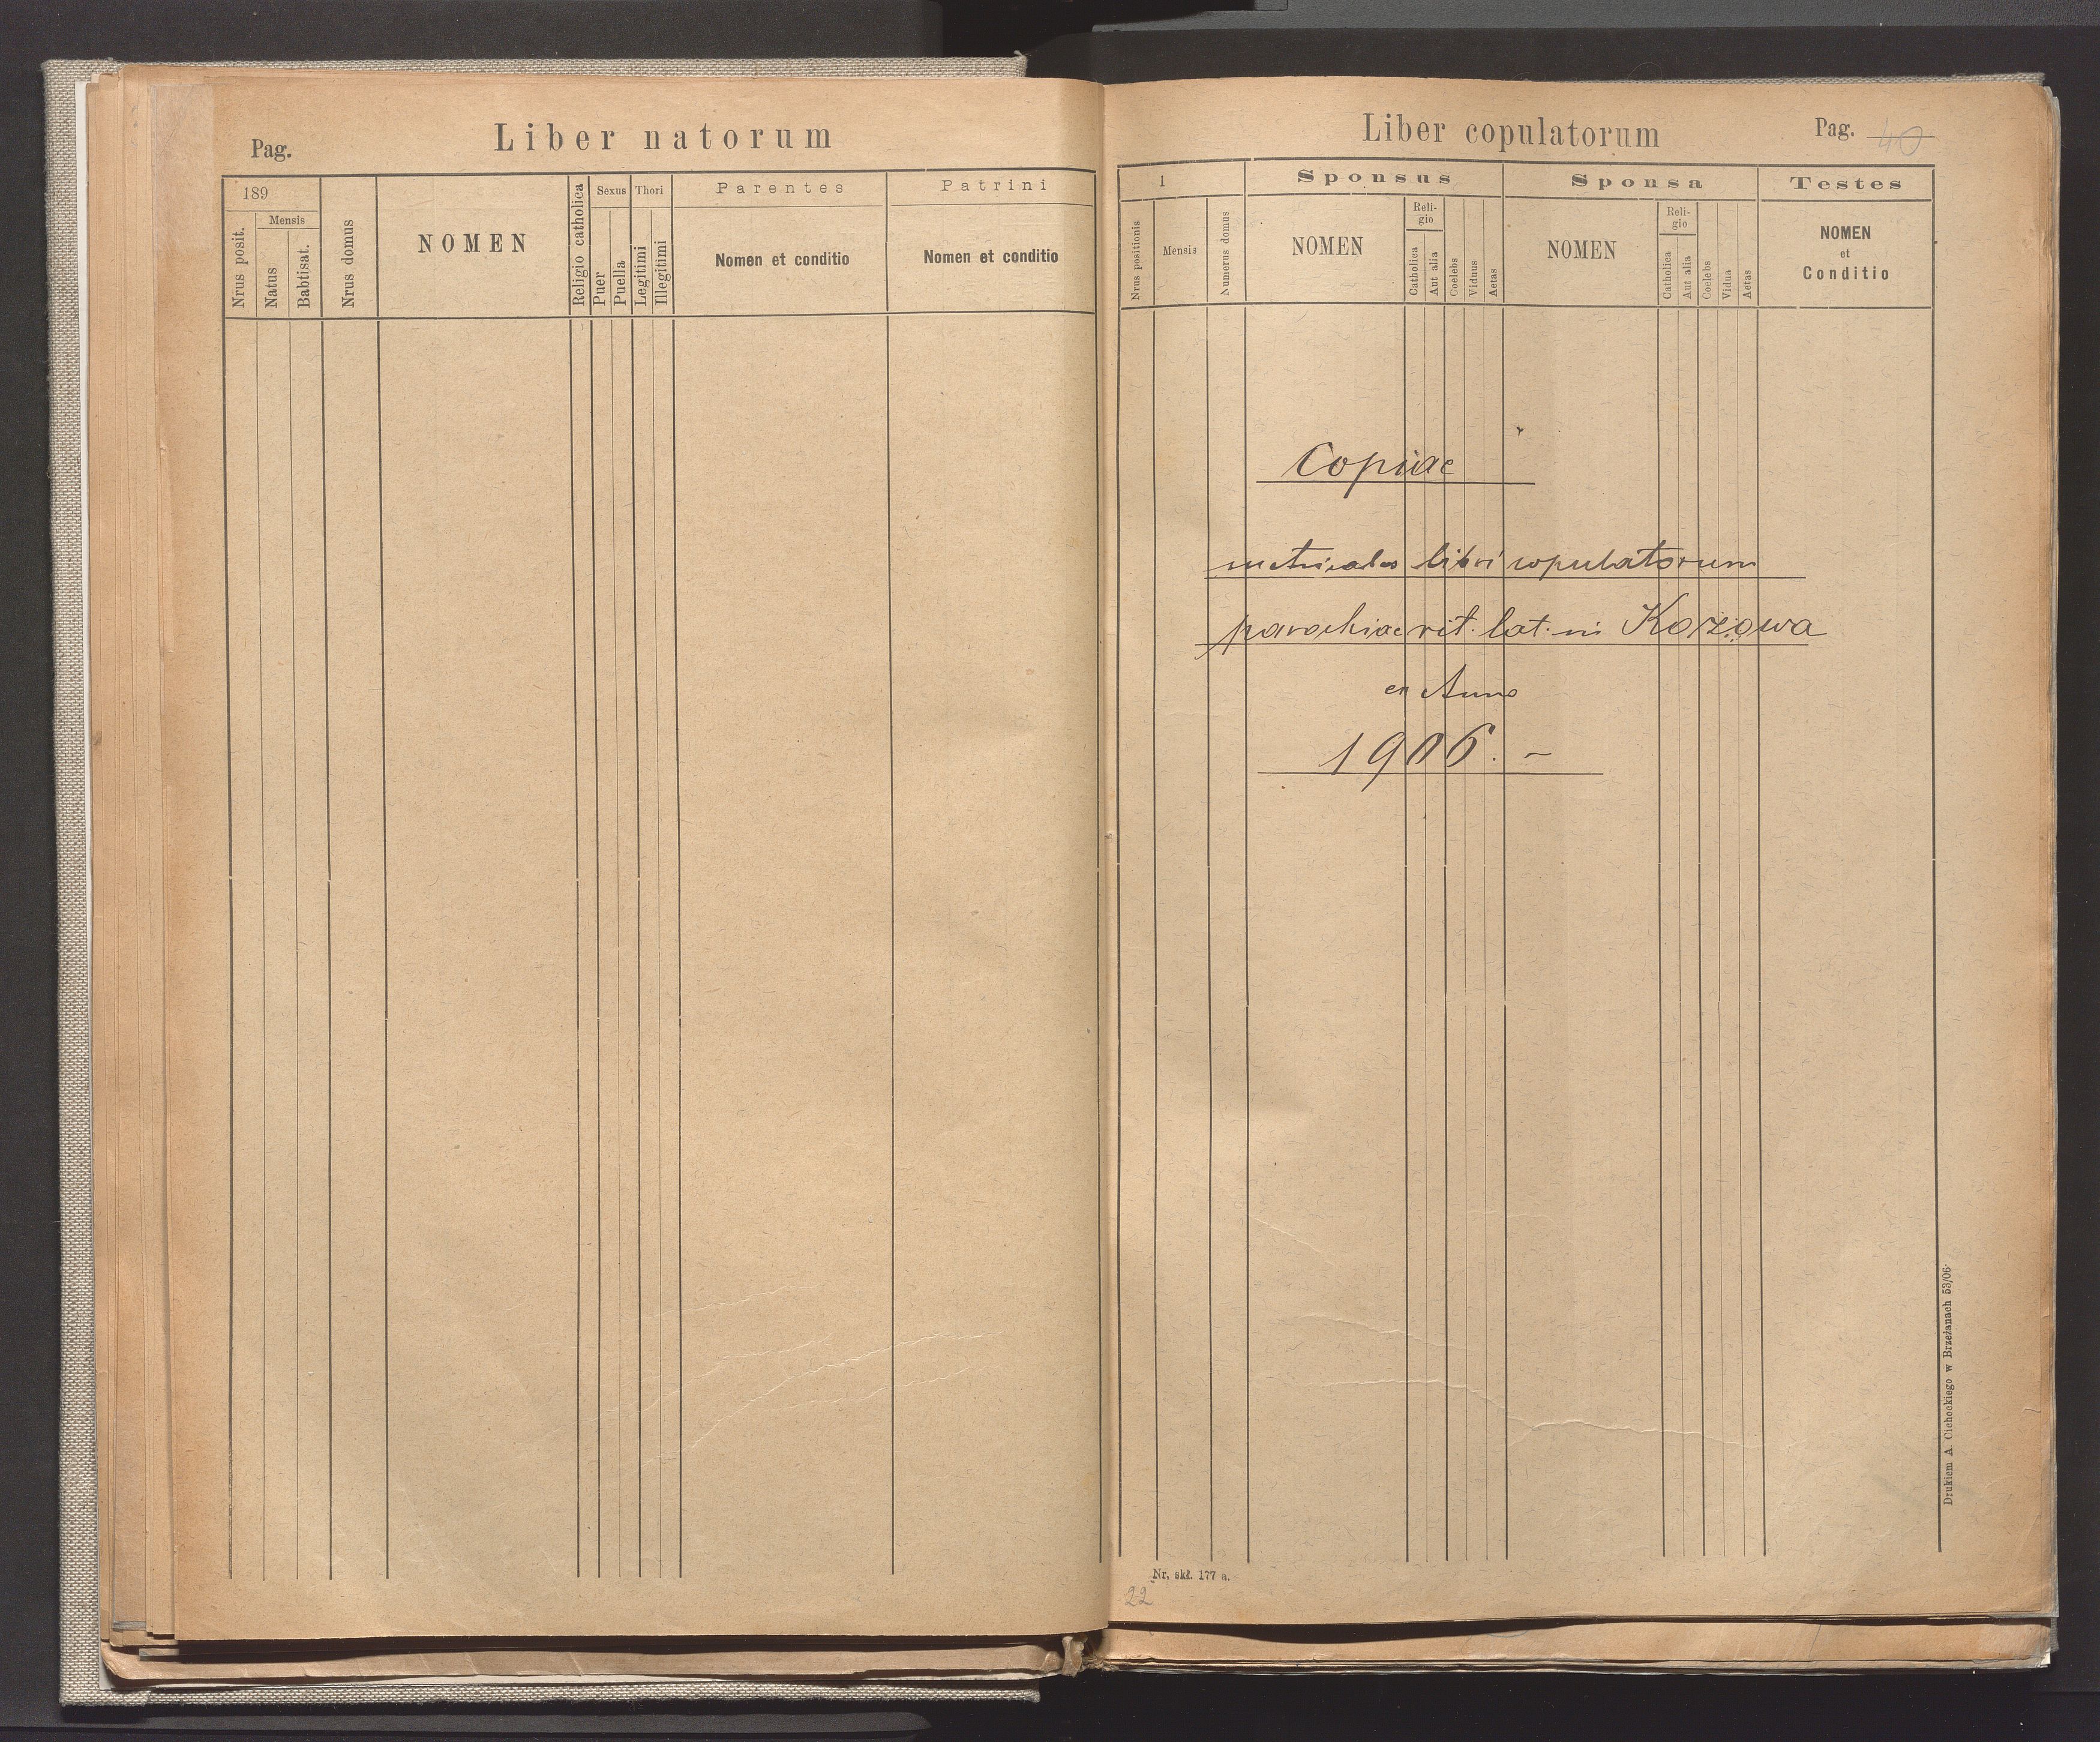 Liber natorum
Pag.
189
Mensis
Nrus posit.
Natus
Babtisat.
Nrus domus
NOMEN
Religio catholica
Sexus
Puer
Puella
Thori
Legitimi
Illegitimi
Parentes
Nomen et conditio
Patrini
Nomen et conditio
Liber copulatorum
Pag. 40
1
Nrus positionis
Mensis
Numerus domus
Sponsus
NOMEN
Reli-
gio
Catholica
Aut alia
Coelebs
Viduus
Aetas
Sponsa
NOMEN
Reli-
gio
Catholica
Aut alia
Coelebs
Vidua
Aetas
Testes
NOMEN
et
Conditio
Copiae
metricales libri copulatorum
parochiae rit. lat. in Kozowa
ex Anno
1906. –
Drukiem A. Cichockiego w Brzeżanach 53/06.
Nr. skł. 177 a.
22